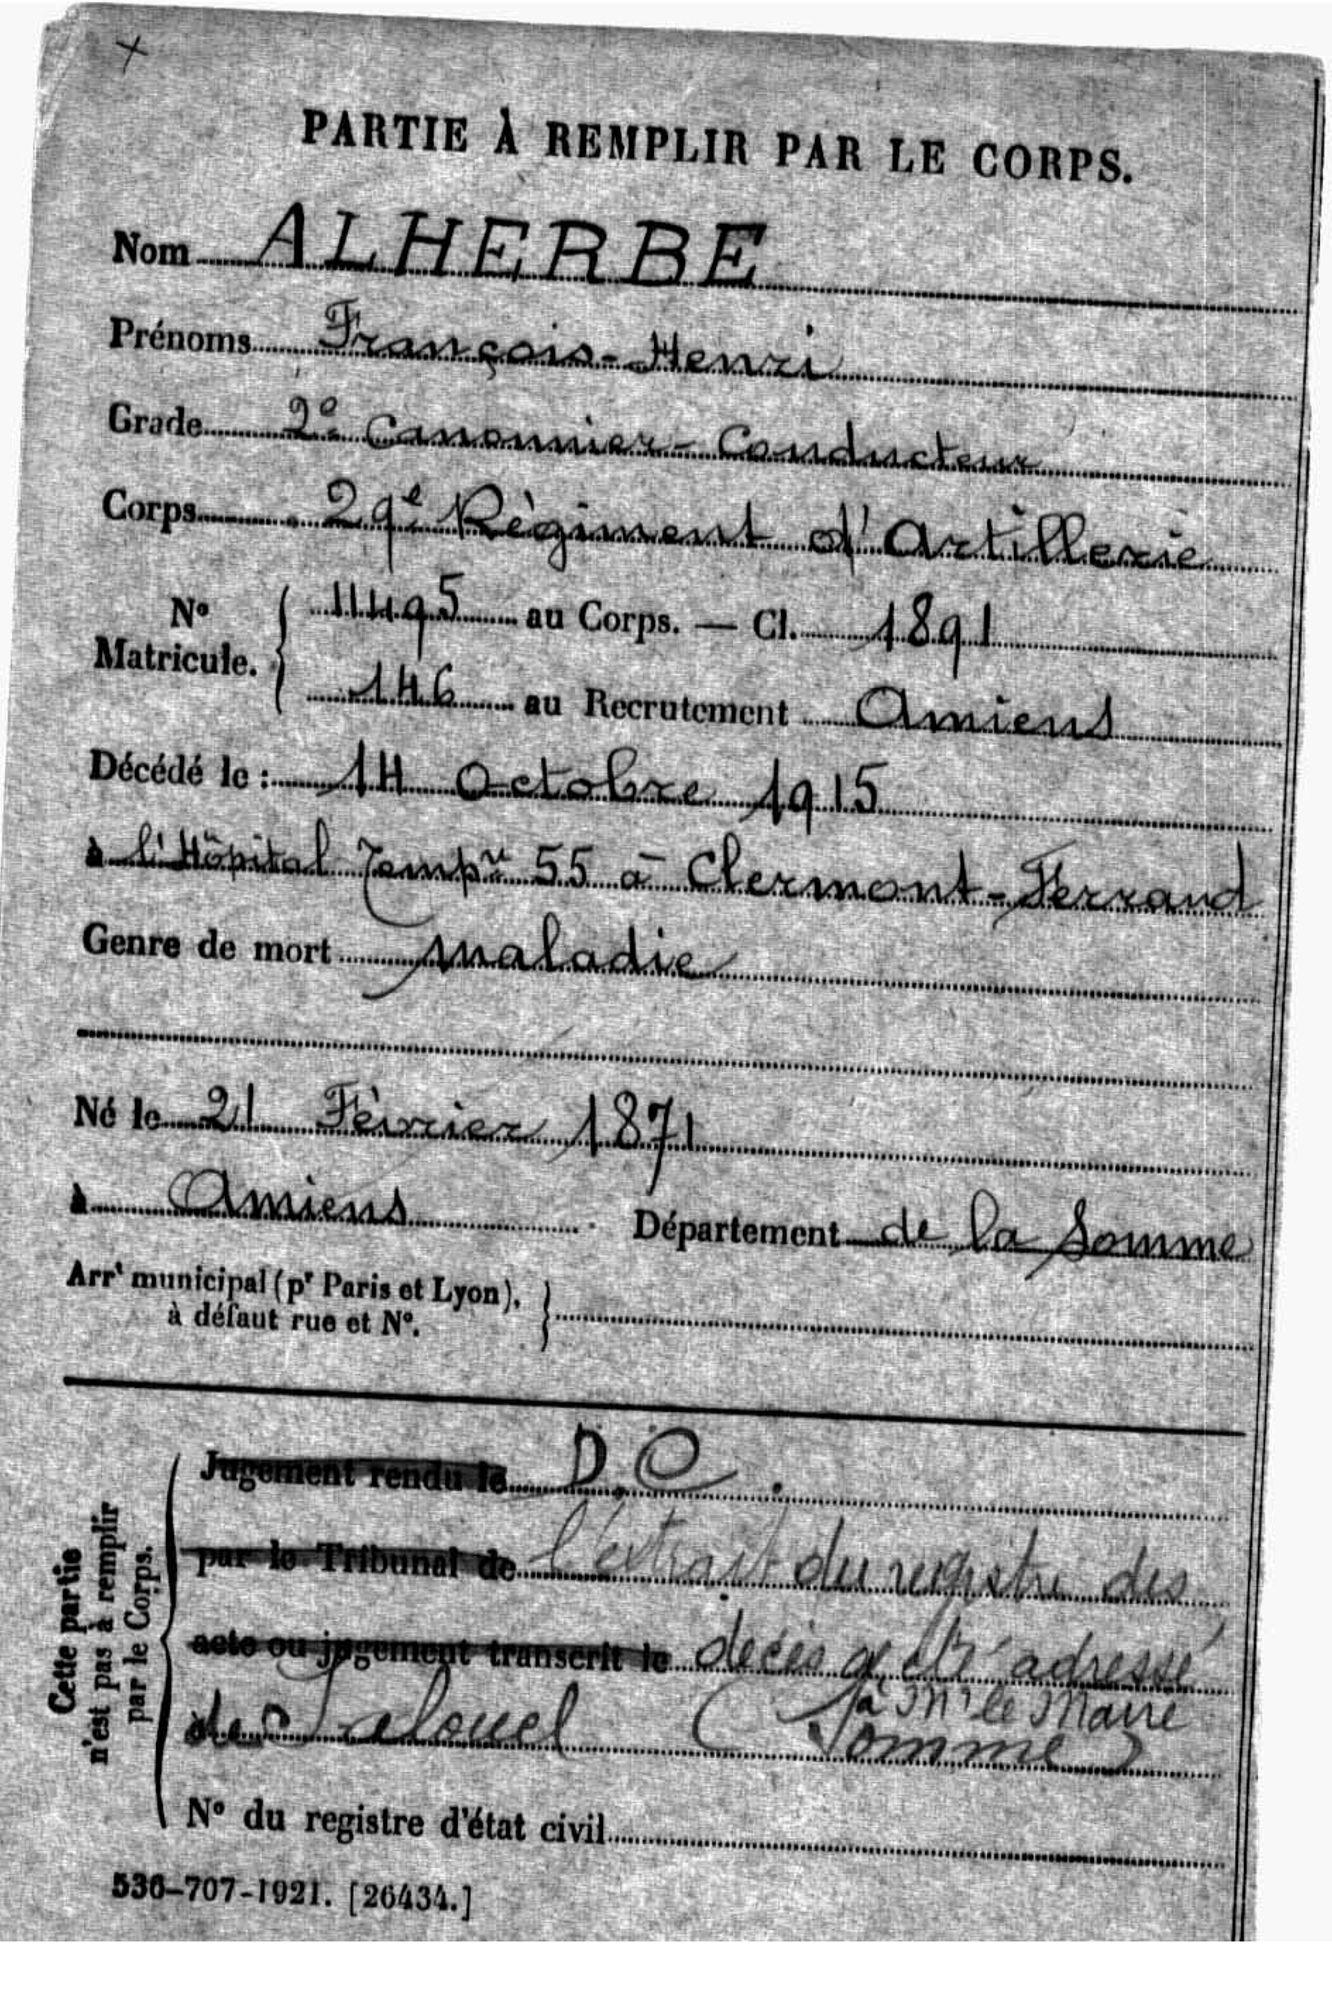 PARTIE À REMPLIR PAR LE CORPS.
Nom ALHERBE
Prénoms François-Henri
Grade 2e Canonnier-Conducteur
Corps 29e Régiment d'Artillerie
No Matricule. { 11495 au Corps. — Cl. 1891
146 au Recrutement Amiens
Décédé le : 14 Octobre 1915
à l'Hôpital Tempre 55 à Clermont-Ferrand
Genre de mort maladie
Né le 21 Février 1871
à Amiens Département de la Somme
Arrt municipal (pr Paris et Lyon), }
à défaut rue et No.
Cette partie
n'est pas à remplir
par le Corps.
Jugement rendu le D.C.
par le Tribunal de l'extrait du registre des
acte ou jugement transcrit le décès a été adressé
à Mr le Maire
de Salouel (Somme)
No du registre d'état civil
536-707-1921. [26434.]